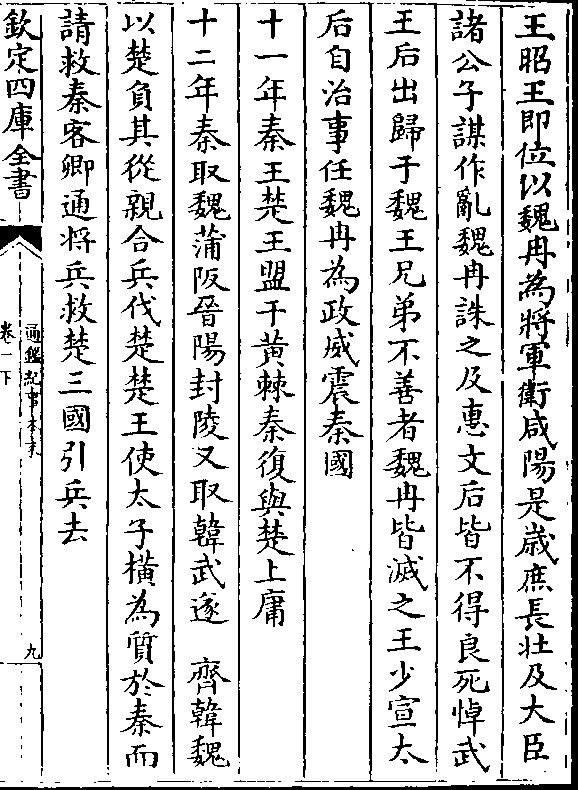 王昭王即位以魏冉為將軍衛咸陽是歲庶長壮及大臣
諸公子謀作亂魏冉誅之及惠文后皆不得良死悼武
王后出歸于魏王兄弟不善者魏冉皆滅之王少宣太
后自治事任魏冉為政威震秦國
十一年秦王楚王盟于黃棘秦復與楚上庸
十二年秦取魏蒲阪晉陽封陵又取韓武遂　齊韓魏
以楚負其從親合兵伐楚楚王使太子橫為質於秦而
請救秦客卿通將兵救楚三國引兵去
欽定四庫全書
通鑑紀事本末
卷一下
九